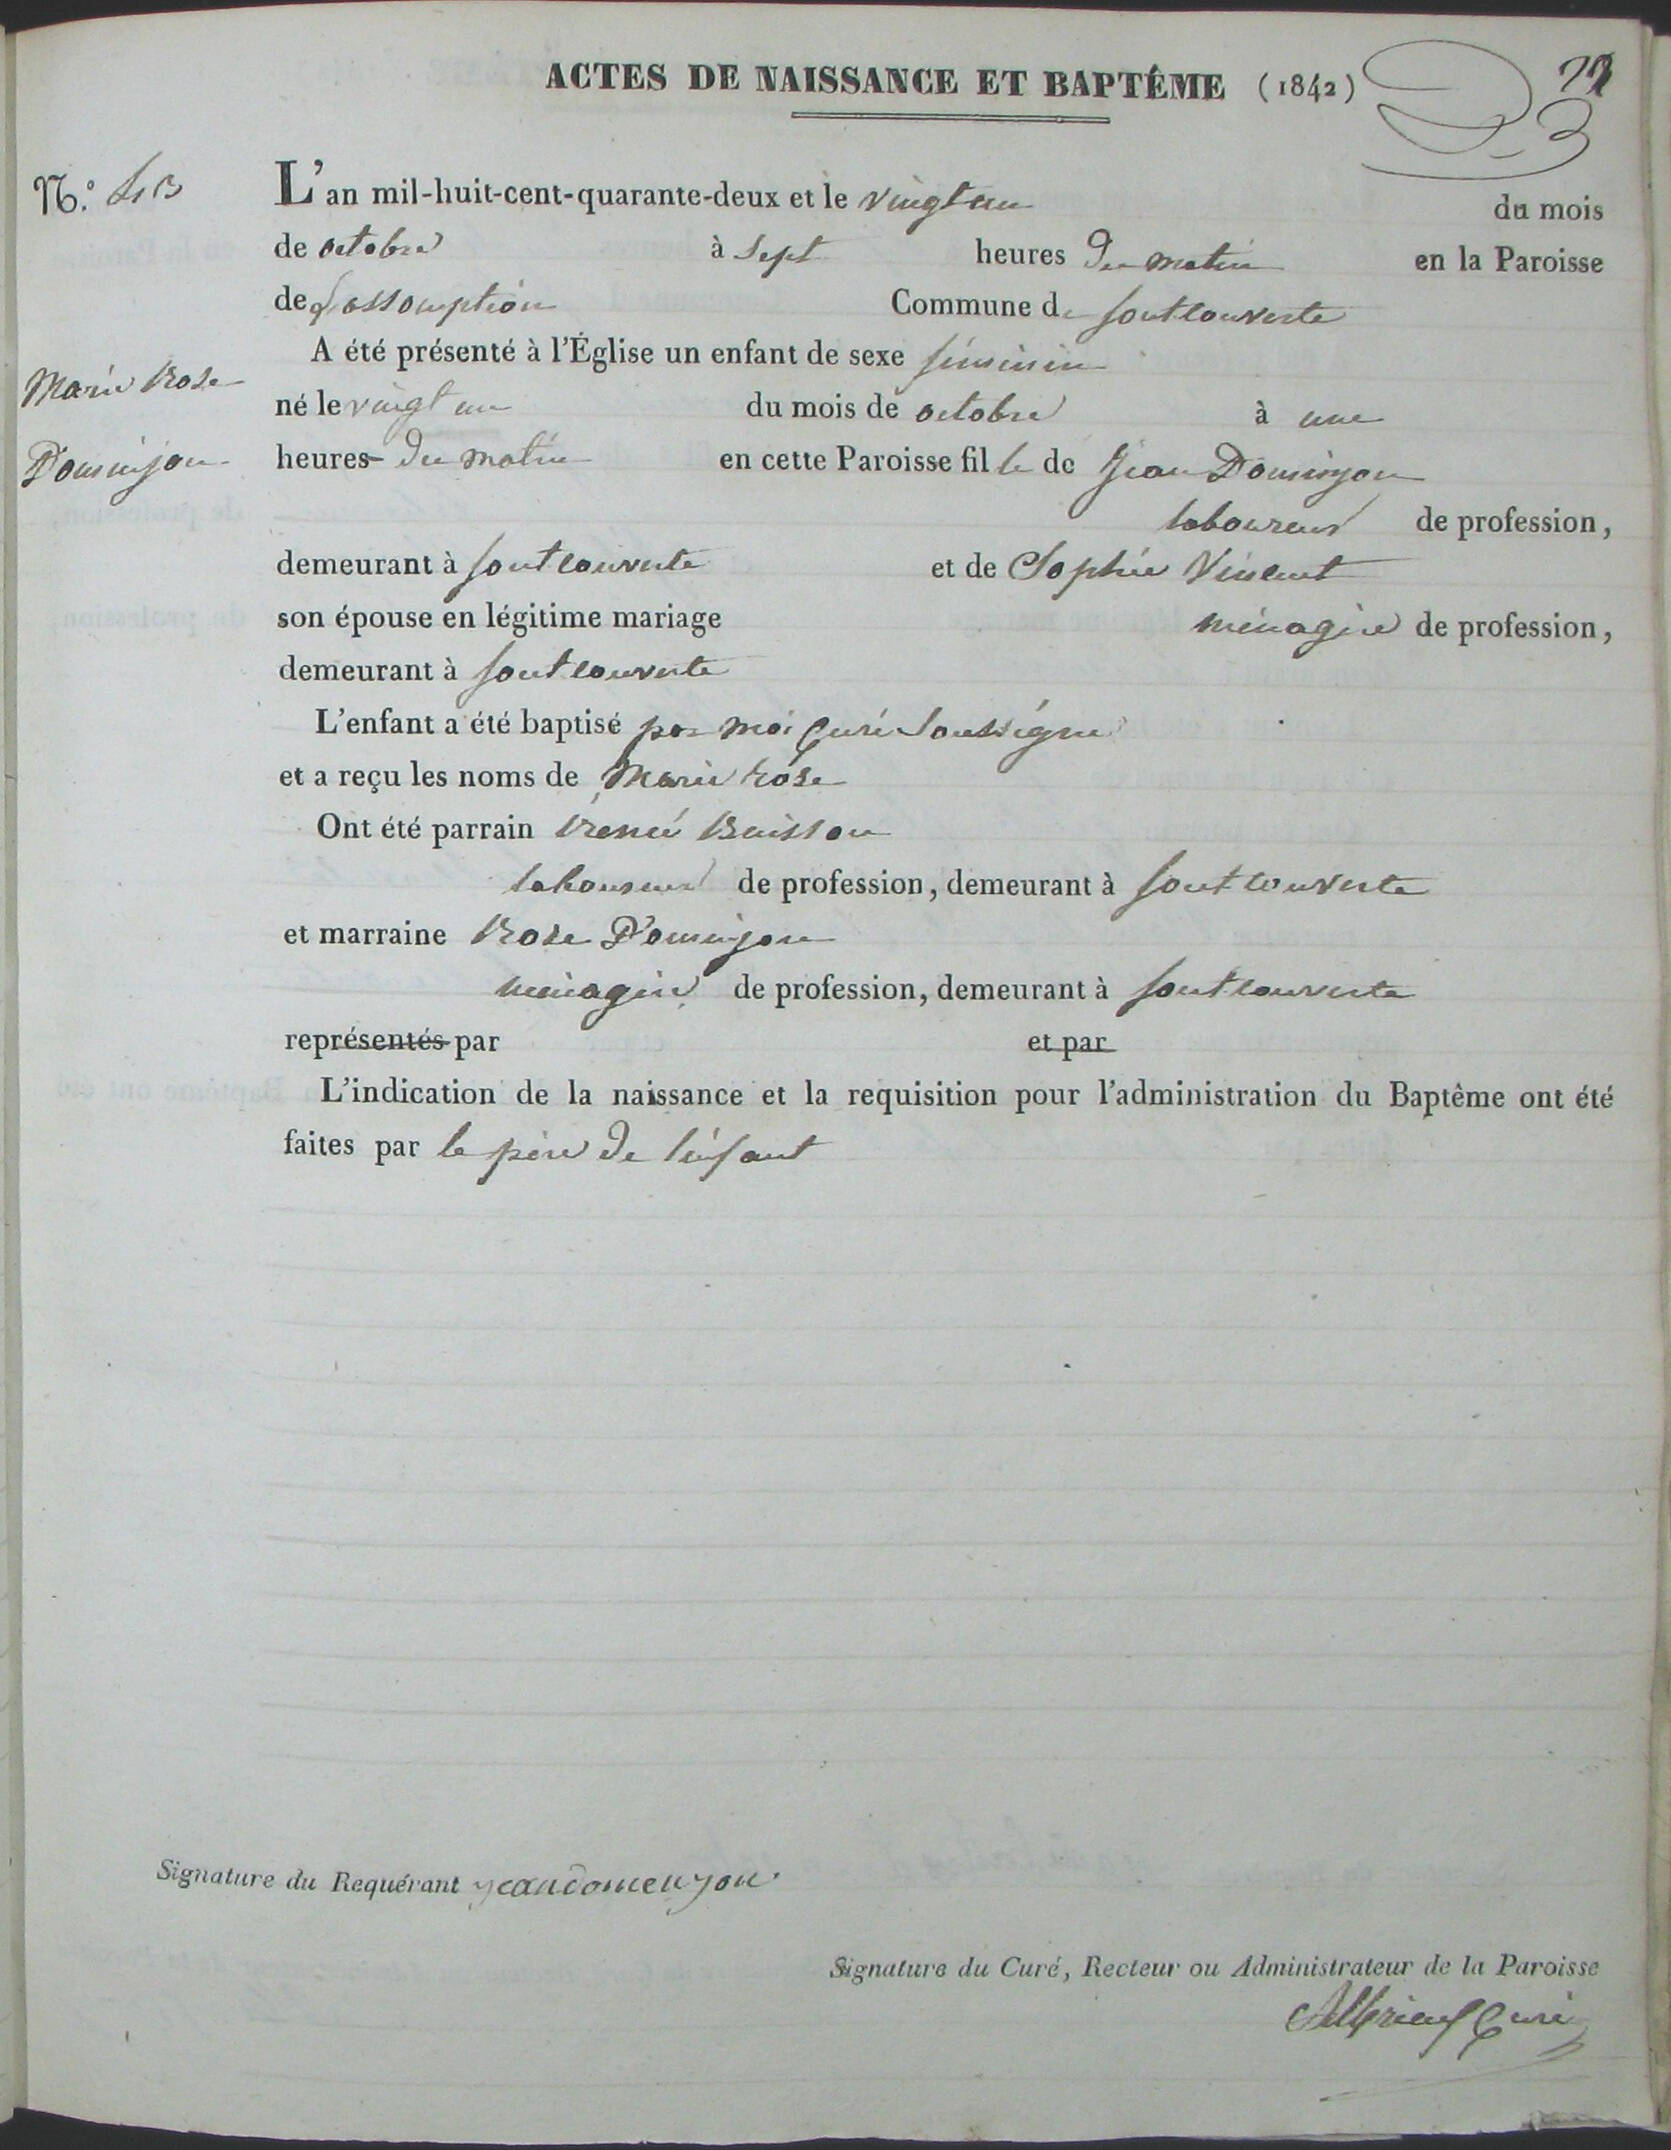 ACTES DE NAISSANCE ET BAPTÊME (1842)
N.º 43
L'an mil-huit-cent-quarante-deux et le vingt un du mois
de octobre à sept heures du matin en la Paroisse
de L'assomption Commune de fontcouverte
A été présenté à l'Église un enfant de sexe féminin
Marie Rose
né le vingt un du mois de octobre à une
Dominjon
heures du matin en cette Paroisse fille de Jean Dominjon
laboureur de profession,
demeurant à fontcouverte et de Sophie Vincent
son épouse en légitime mariage ménagère de profession,
demeurant à fontcouverte
L'enfant a été baptisé par moi Curé soussigné
et a reçu les noms de Marie Rose
Ont été parrain René Buisson
laboureur de profession, demeurant à fontcouverte
et marraine Rose Dominjon
ménagère de profession, demeurant à fontcouverte
représentés par et par
L'indication de la naissance et la requisition pour l'administration du Baptême ont été
faites par le père de l'enfant
Signature du Requérant jeandomenjon
Signature du Curé, Recteur ou Administrateur de la Paroisse
Curé